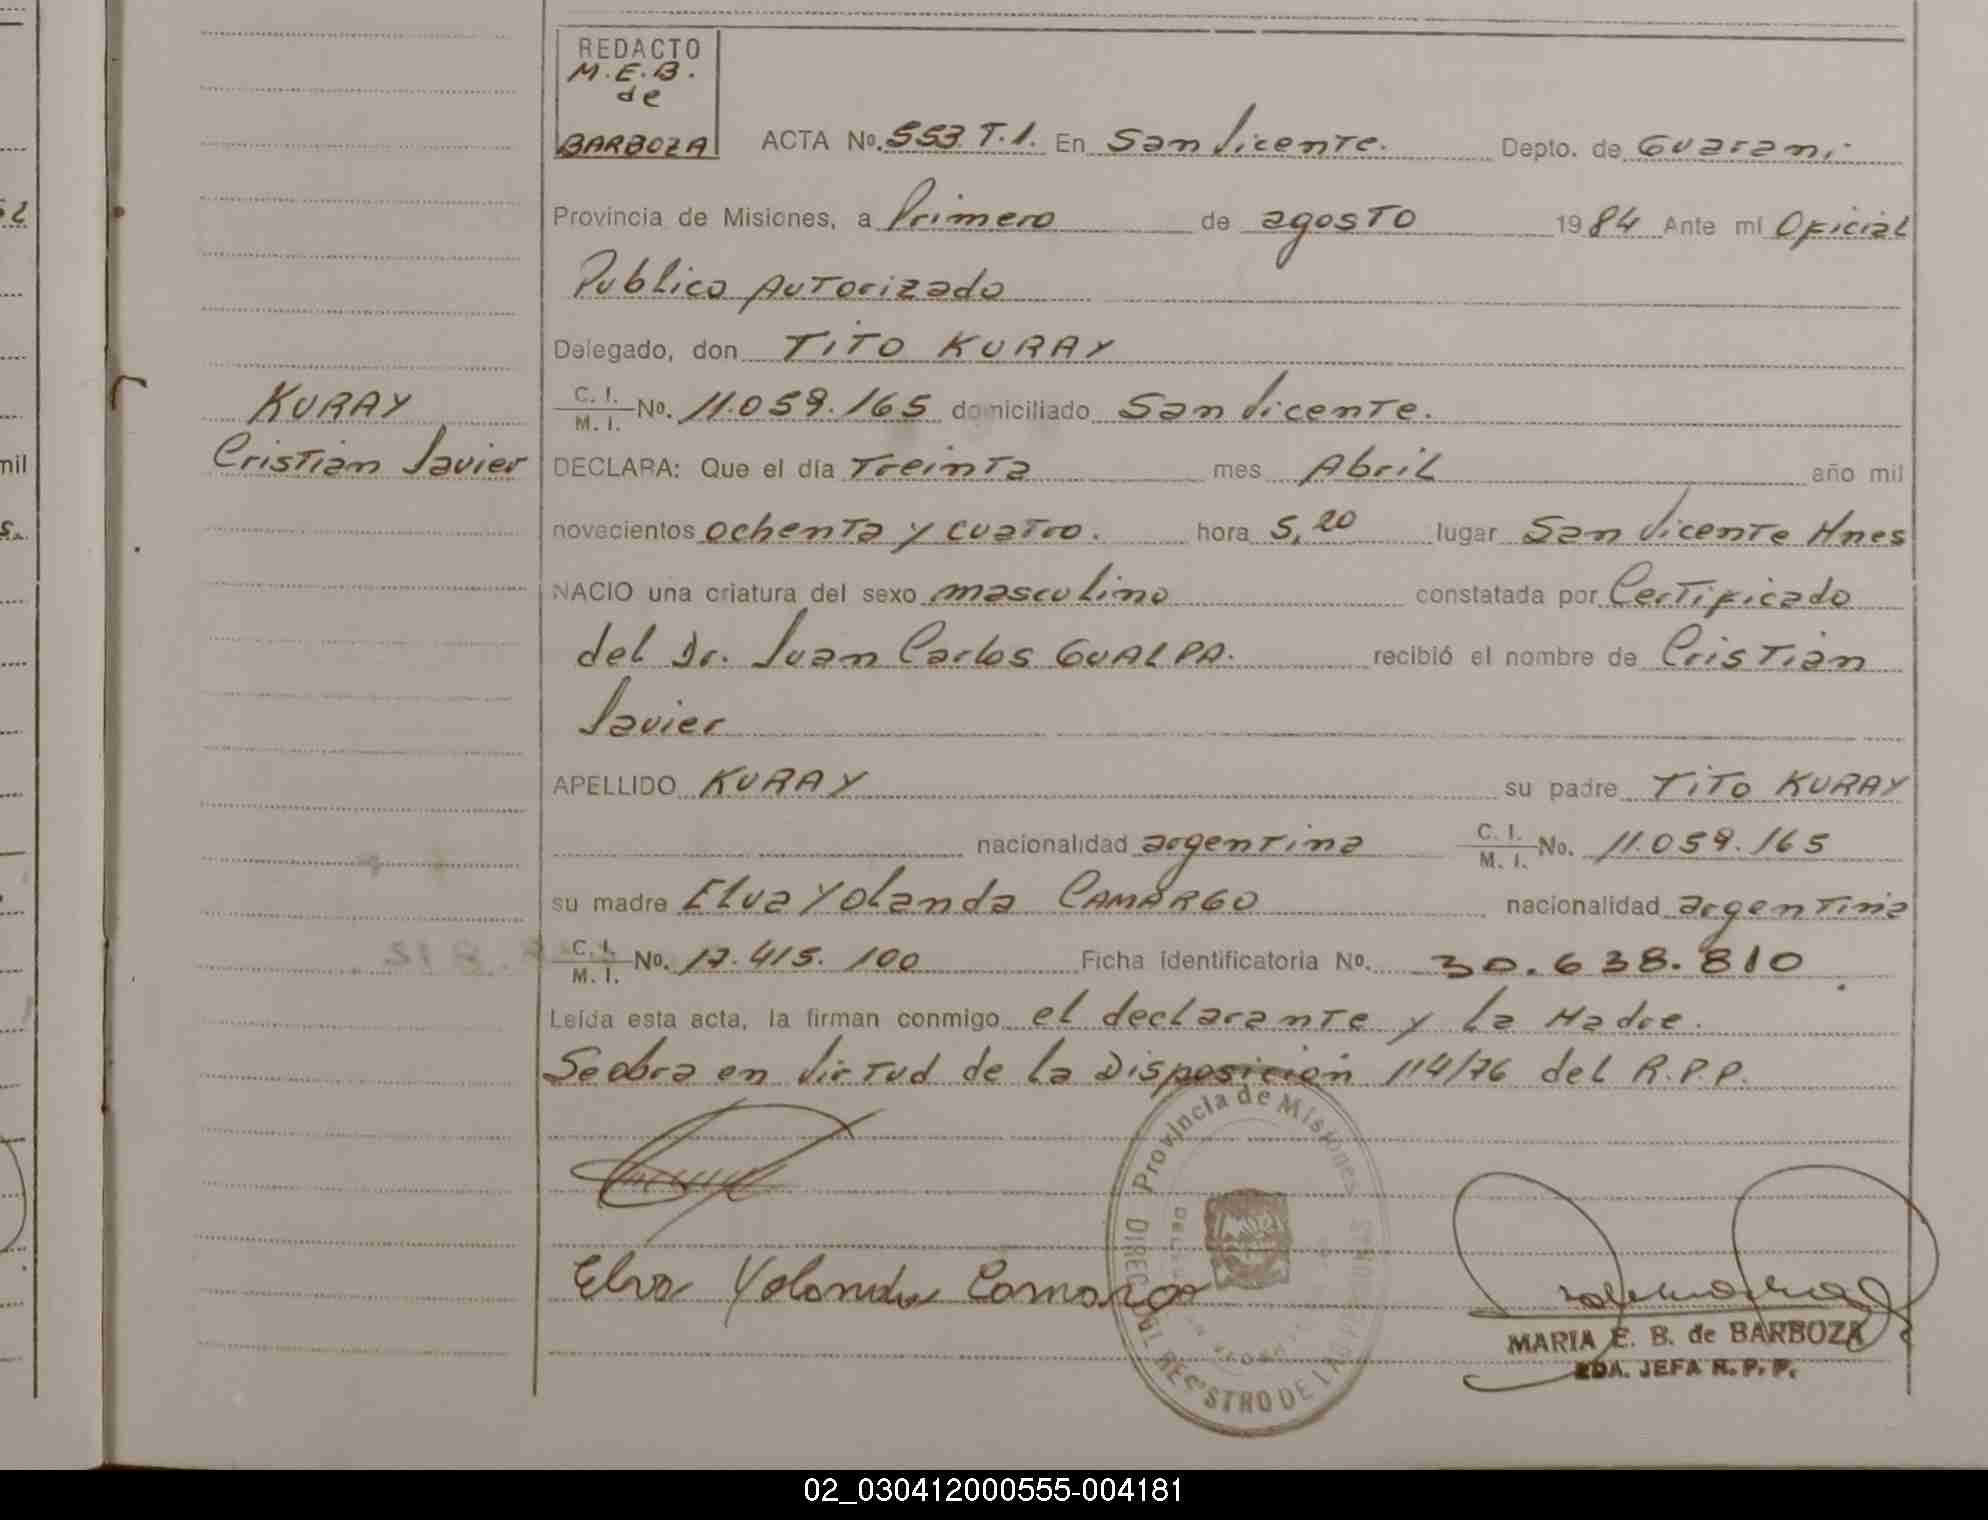 REDACTO
M.E.B.
de
BARBOZA
ACTA No. 553 T.1. En San Vicente. Depto. de Guaraní
Provincia de Misiones, a Primero de agosto 1984 Ante mí Oficial
Publico Autorizado
Delegado, don TITO KURAY
KURAY
C. I.
M. I. No. 11.059.165 domiciliado San Vicente.
Cristian Javier
DECLARA: Que el día Treinta mes Abril año mil
novecientos ochenta y cuatro. hora 5,20 lugar San Vicente Mnes
NACIO una criatura del sexo masculino constatada por Certificado
del Dr. Juan Carlos GUALPA. recibió el nombre de Cristian
Javier
APELLIDO KURAY su padre TITO KURAY
nacionalidad argentina C. I.
M. I. No. 11.059.165
su madre Elva Yolanda CAMARGO nacionalidad argentina
C. I.
M. I. No. 17.415.100 Ficha identificatoria No. 30.638.810
Leída esta acta, la firman conmigo el declarante y la Madre.
Se obra en virtud de la Disposición 114/76 del R.P.P.
Provincia de Misiones
DIREC. GL. REGISTRO DE LAS PERSONAS
Elva Yolanda Camargo
MARIA E. B. de BARBOZA
2DA. JEFA R. P. P.
mil
02_030412000555-004181